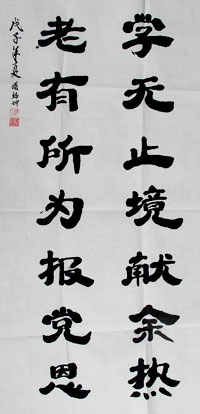 学无止境献余热
老有所为报党恩
戊子年夏